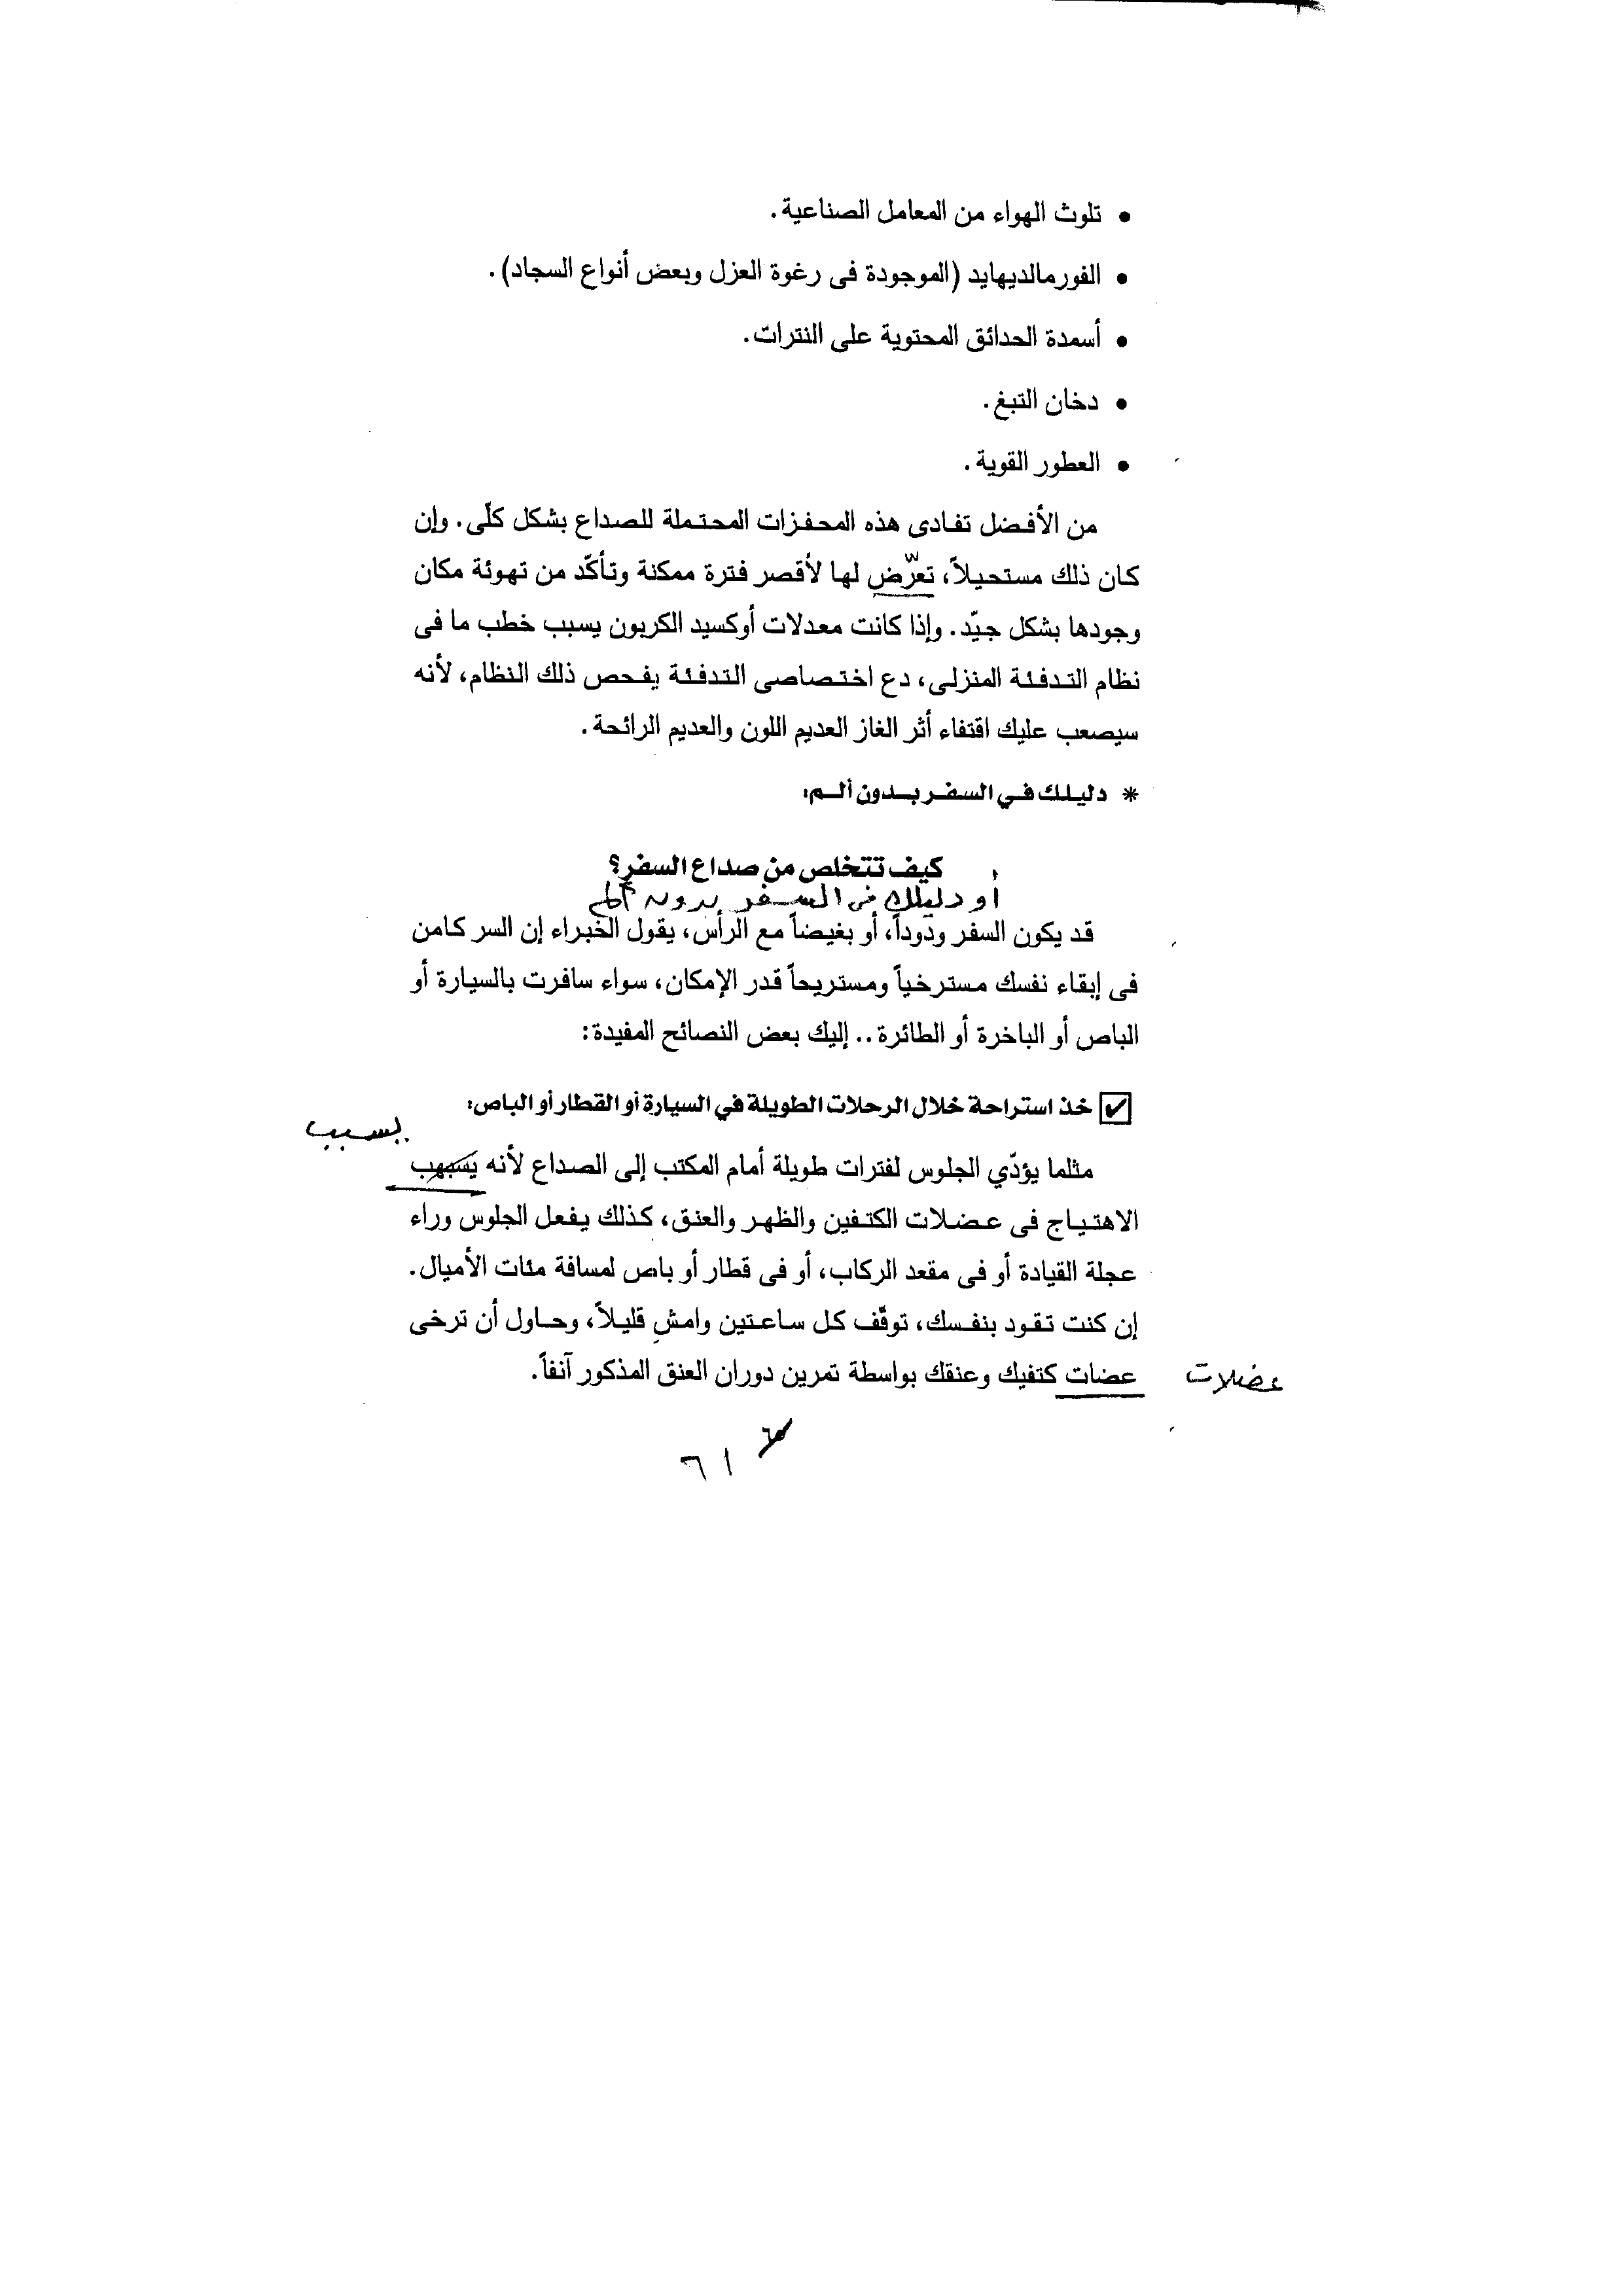 • تلوث الهواء من المعامل الصناعية.
• الفورمالديهايد (الموجودة فى رغوة العزل وبعض أنواع السجاد).
• أسمدة الحدائق المحتوية على النترات.
• دخان التبغ.
• العطور القوية.
من الأفضل تفادى هذه المحفزات المحتملة للصداع بشكل كلّى. وإن
كان ذلك مستحيلاً، تعرّض لها لأقصر فترة ممكنة وتأكّد من تهوئة مكان
وجودها بشكل جيّد. وإذا كانت معدلات أوكسيد الكربون يسبب خطب ما فى
نظام التدفئة المنزلى، دع اختصاصى التدفئة يفحص ذلك النظام، لأنه
سيصعب عليك اقتفاء أثر الغاز العديم اللون والعديم الرائحة.
* دليلك في السفر بدون ألم:
كيف تتخلص من صداع السفر؟
أو دليلك فى السفر بدون ألم
قد يكون السفر ودوداً، أو بغيضاً مع الرأس، يقول الخبراء إن السر كامن
فى إبقاء نفسك مسترخياً ومستريحاً قدر الإمكان، سواء سافرت بالسيارة أو
الباص أو الباخرة أو الطائرة.. إليك بعض النصائح المفيدة:
☑ خذ استراحة خلال الرحلات الطويلة في السيارة أو القطار أو الباص:
بسبب
مثلما يؤدّي الجلوس لفترات طويلة أمام المكتب إلى الصداع لأنه
الاهتياج فى عضلات الكتفين والظهر والعنق، كذلك يفعل الجلوس وراء
عجلة القيادة أو فى مقعد الركاب، أو فى قطار أو باص لمسافة مئات الأميال.
إن كنت تقود بنفسك، توقّف كل ساعتين وامشِ قليلاً، وحاول أن ترخى
عضات كتفيك وعنقك بواسطة تمرين دوران العنق المذكور آنفاً.
عضلات
٦١